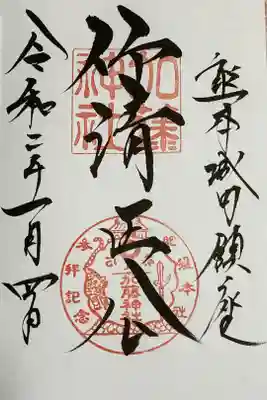 熊本城内鎮座
仰清正公
加藤神社
加藤神社
参拝記念
令和二年一月四日